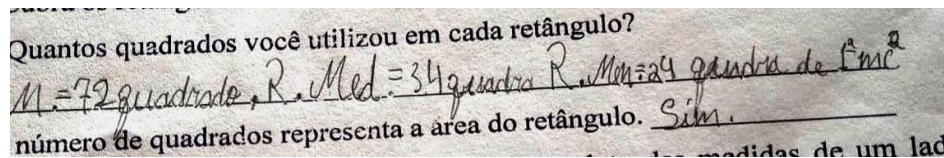 Quantos quadrados você utilizou em cada retângulo?
M.=72 quadrado, R. Med.=34 quadra R. Men=24 quadra de
número de quadrados representa a área do retângulo. Sim.
medidas de um lad